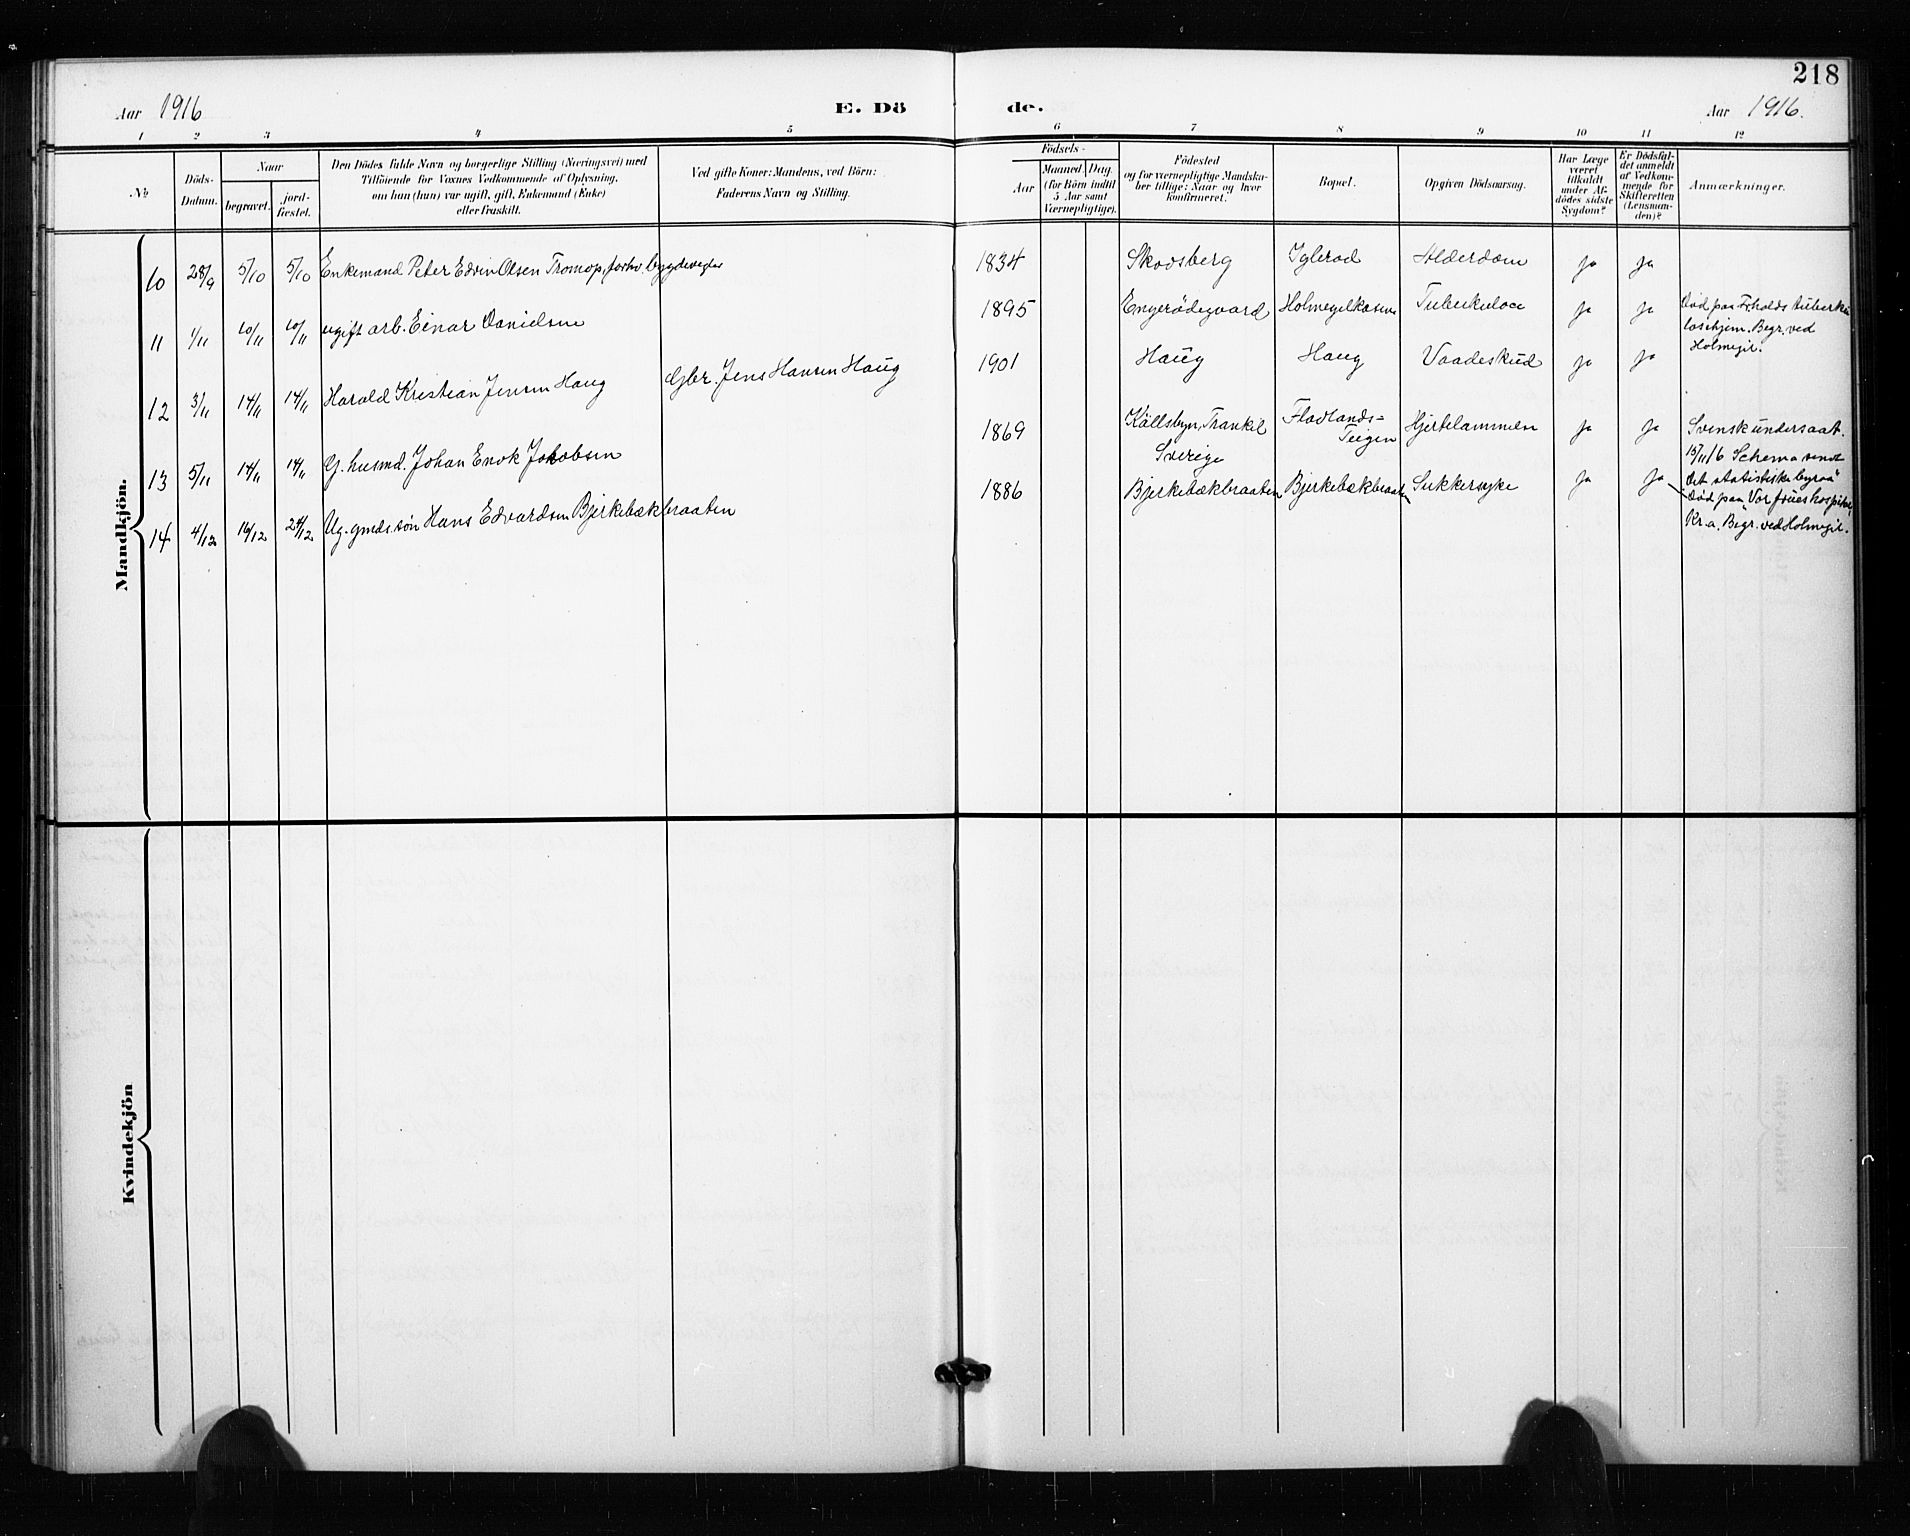 218
Aar 1916
E. Dö
de.
Aar 1916.
1 2 3 4 5 6 7 8 9 10 11 12
№
Döds-
Datum.
Naar
begravet.
jord-
fæstet.
Den Dödes fulde Navn og borgerlige Stilling (Næringsvei) med
Tilföiende for Voxnes Vedkommende af Oplysning,
om han (hun) var ugift, gift, Enkemand (Enke)
eller fraskilt.
Ved gifte Koner: Mandens, ved Börn:
Faderens Navn og Stilling.
Födsels-
Aar
Maaned. Dag.
(for Börn indtil
5 Aar samt
Værnepligtige).
Födested
og for værnepligtige Mandska-
ber tillige: Naar og hvor
konfirmeret.
Bopæl.
Opgiven Dödsaarsag.
Har Læge
været
tilkaldt
under Af-
dödes sidste
Sygdom?
Er Dödsfal-
det anmeldt
af Vedkom-
mende for
Skifteretten
(Lensman-
den)?
Anmærkninger.
Mandkjön.
10 28/9 5/10 5/10 Enkemand Peter Edvin Olsen Tromop, forhv. bygdevegter 1834 Skodsberg Iglerød Alderdom ja ja
11 1/11 10/11 10/11 ugift arb. Einar Danielsen 1895 Engerödegaard Tuberkulose ja ja Död paa Fr.halds tuberku
loschjem. Begr. ved
Holmegil.
12 3/11 14/11 14/11 Harald Kristian Jensen Haug Gbr. Jens Hansen Haug 1901 Haug Haug Vaadeskud ja ja
13 5/11 14/11 14/11 G. husmd. Johan Enok Jakobsen 1869 Källsbyn, Trankil
Sverige
Flødlands=
Teigen
Hjertelammelse ja ja Svensk undersaat.
15/11 16 Schema sendt
"Det statistiske byraa"
14 4/12 16/12 24/12 Ug. gmds. søn Hans Edvardsen Bjerkebækbraaten 1886 Bjerkebækbraaten Bjerkebækbraaten Sukkersyke ja ja Död paa "Vor frues hospital,
Kr.a. Begr. ved Holmegil.
Kvindekjön